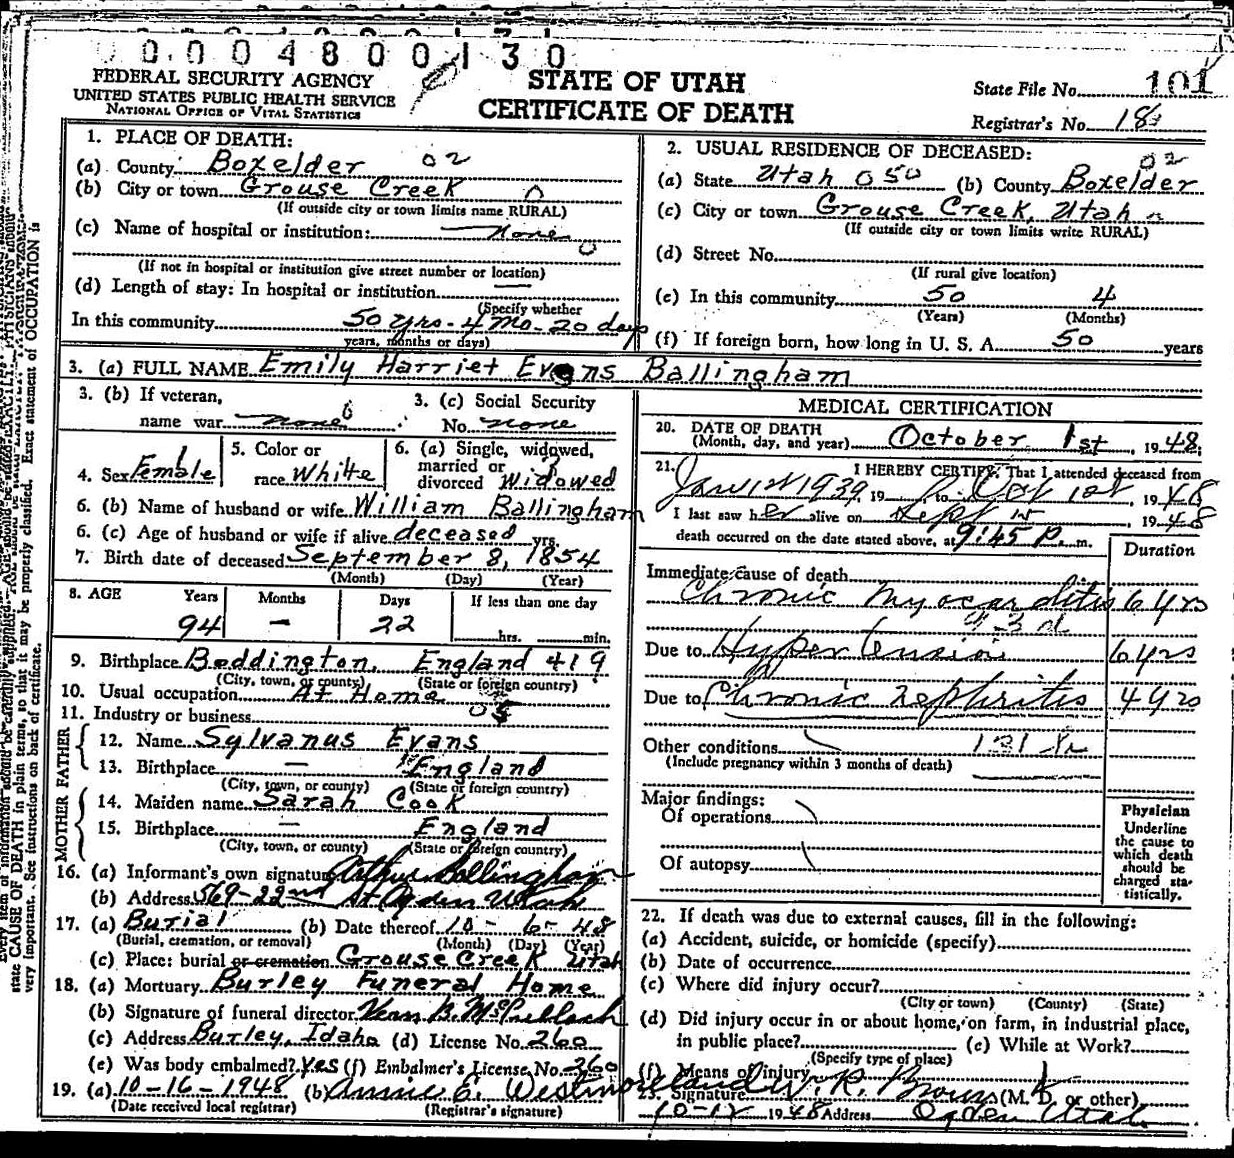 0004800130
FEDERAL SECURITY AGENCY
UNITED STATES PUBLIC HEALTH SERVICE
NATIONAL OFFICE OF VITAL STATISTICS
STATE OF UTAH
CERTIFICATE OF DEATH
State File No. 101
Registrar's No. 18
1. PLACE OF DEATH:
(a) County Boxelder 02
(b) City or town Grouse Creek 0
(If outside city or town limits name RURAL)
(c) Name of hospital or institution: none
0
(If not in hospital or institution give street number or location)
(d) Length of stay: In hospital or institution —
(Specify whether
In this community 50 yrs - 4 Mo - 20 days
years, months or days)
2. USUAL RESIDENCE OF DECEASED:
02
(a) State Utah 050 (b) County Boxelder
(c) City or town Grouse Creek, Utah
(If outside city or town limits write RURAL)
(d) Street No.
(If rural give location)
(e) In this community 50 4
(Years) (Months)
(f) If foreign born, how long in U. S. A. 50 years
3. (a) FULL NAME Emily Harriet Evans Ballingham
3. (b) If veteran,
name war none
3. (c) Social Security
No. none
4. Sex Female
5. Color or
race White
6. (a) Single, widowed,
married or
divorced Widowed
6. (b) Name of husband or wife William Ballingham
6. (c) Age of husband or wife if alive deceased yrs.
7. Birth date of deceased September 8, 1854
(Month) (Day) (Year)
8. AGE Years Months Days If less than one day
94 — 22 hrs. min.
9. Birthplace Beddington, England 419
(City, town, or county) (State or foreign country)
10. Usual occupation At Home
11. Industry or business 05
FATHER
12. Name Sylvanus Evans
13. Birthplace — England
(City, town, or county) (State or foreign country)
MOTHER
14. Maiden name Sarah Cook
15. Birthplace — England
(City, town, or county) (State or foreign country)
16. (a) Informant's own signature Arthur Ballingham
(b) Address 569-22nd St Ogden Utah
17. (a) Burial (b) Date thereof 10-6-48
(Burial, cremation, or removal) (Month) (Day) (Year)
(c) Place: burial or cremation Grouse Creek Utah
18. (a) Mortuary Burley Funeral Home
(b) Signature of funeral director Vern B. McCullock
(c) Address Burley, Idaho (d) License No. 260
(e) Was body embalmed? Yes (f) Embalmer's License No. 260
19. (a) 10-16-1948 (b) Annie E. Westmoreland
(Date received local registrar) (Registrar's signature)
MEDICAL CERTIFICATION
20. DATE OF DEATH
(Month, day, and year) October 1st, 1948
21. I HEREBY CERTIFY, That I attended deceased from
Jan 1st 1939, 19 to Oct 1st, 1948
I last saw her alive on Sept 15, 1948
death occurred on the date stated above, at 9:45 P. m.
Duration
Immediate cause of death
Chronic Myocarditis 6 yrs
Due to Hypertension 6 yrs
Due to Chronic Nephritis 4 yrs
Other conditions 131
(Include pregnancy within 3 months of death)
Major findings:
Of operations
Of autopsy
Physician
Underline
the cause to
which death
should be
charged sta-
tistically.
22. If death was due to external causes, fill in the following:
(a) Accident, suicide, or homicide (specify)
(b) Date of occurrence
(c) Where did injury occur?
(City or town) (County) (State)
(d) Did injury occur in or about home, on farm, in industrial place,
in public place? (e) While at Work?
(Specify type of place)
(f) Means of injury
23. Signature W. R. Brown (M. D. or other)
10-12 1948 Address Ogden Utah
state CAUSE OF DEATH in plain terms, so that it may be properly classified. Exact statement of OCCUPATION is
very important. See instructions on back of certificate.